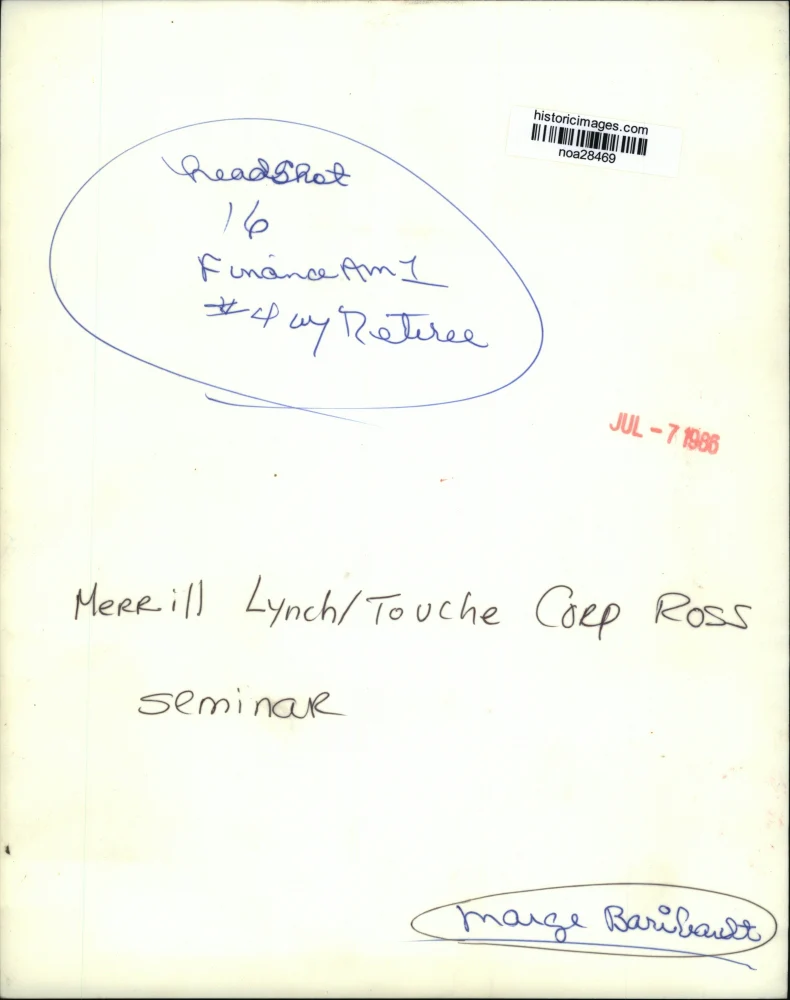 historicimages.com
noa28469
HeadShot
16
Finance Am 1
#4 w/ Retiree
JUL - 7 1986
Merrill Lynch/Touche Corp Ross
seminar
Marge Baribault